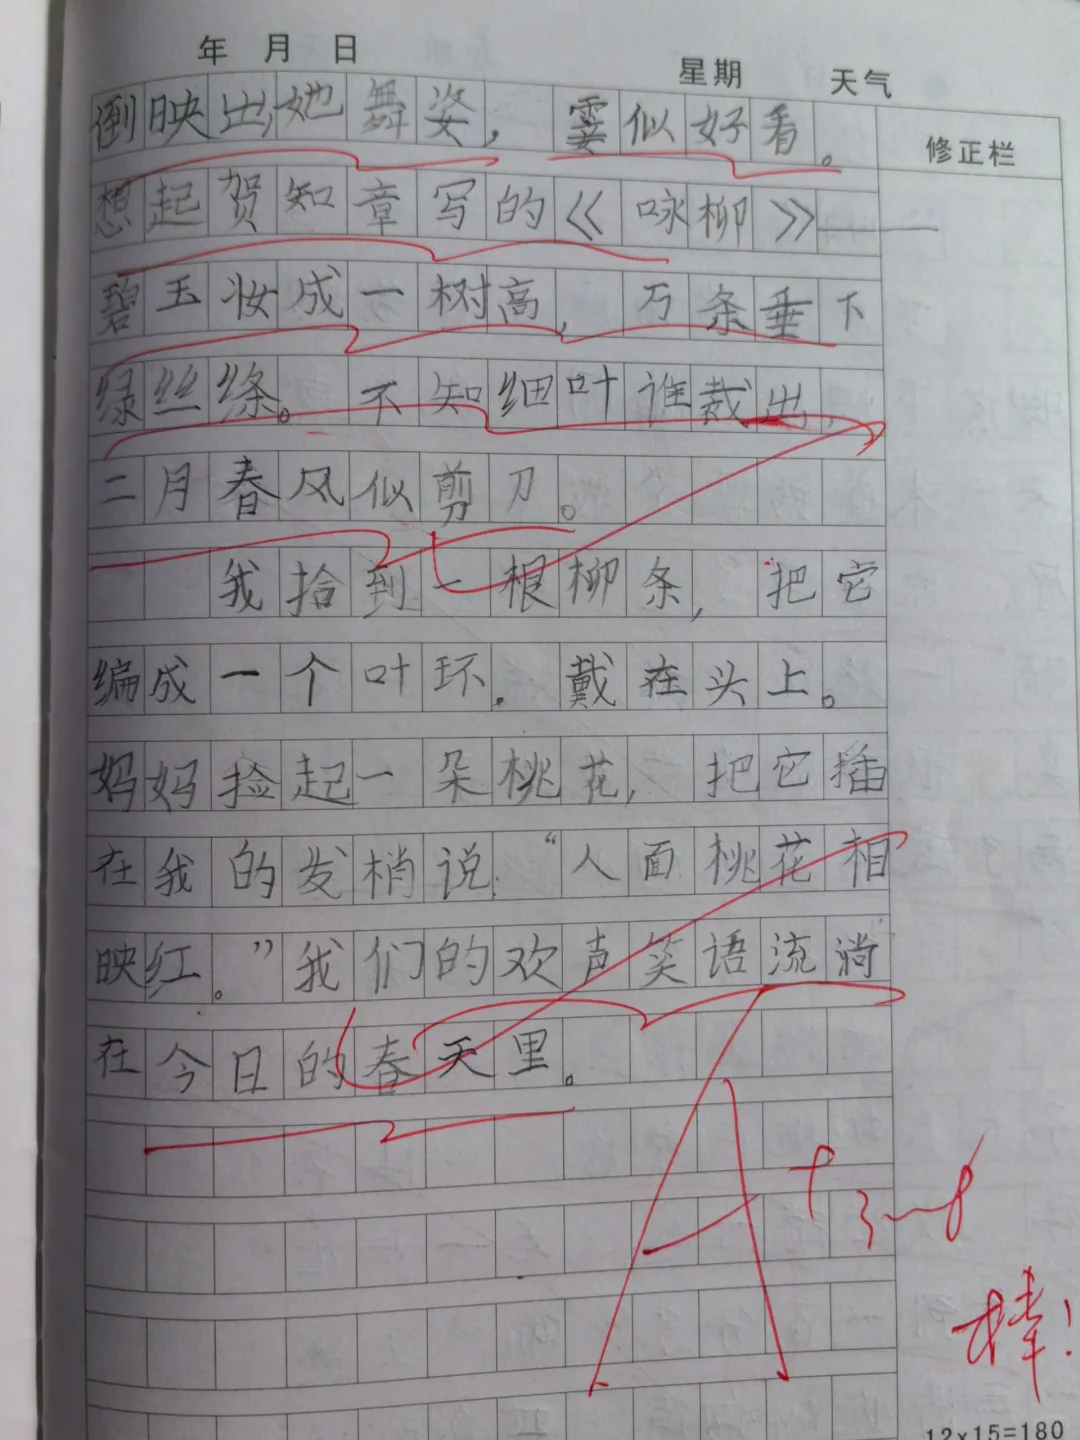 年 月 日 星期 天气
修正栏
倒映出她舞姿，霎似好看。
想起贺知章写的《咏柳》——
碧玉妆成一树高，万条垂下
绿丝绦。不知细叶谁裁出，
二月春风似剪刀。
我拾到一根柳条，把它
编成一个叶环。戴在头上。
妈妈捡起一朵桃花，把它插
在我的发梢说：“人面桃花相
映红。”我们的欢声笑语流淌
在今日的春天里。
A+
棒！
12×15=180